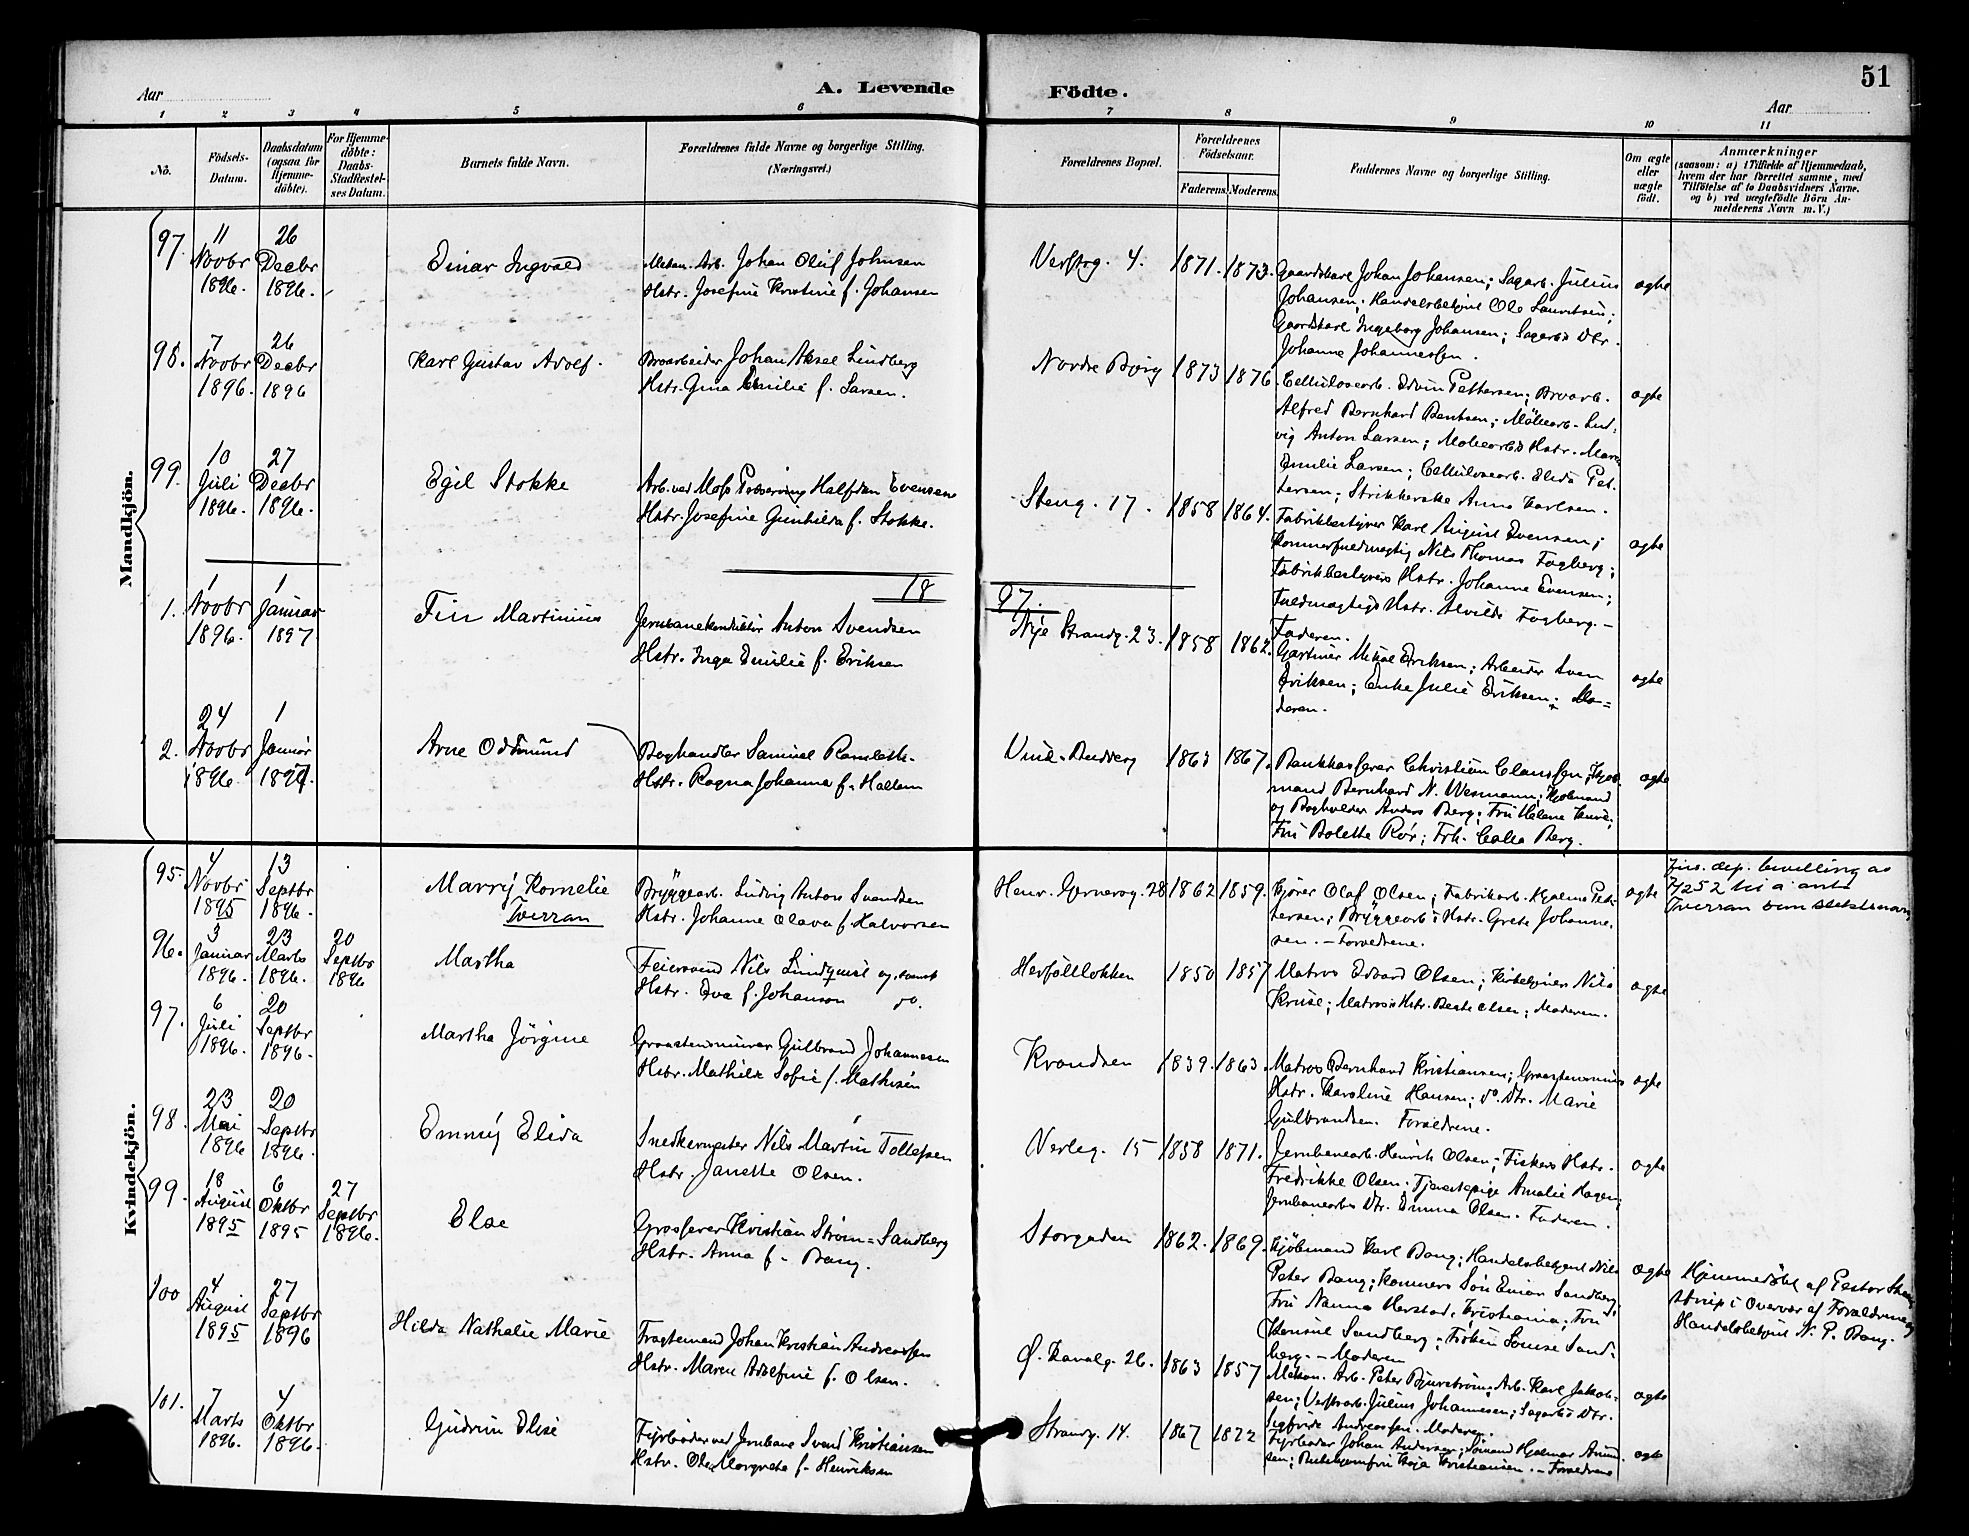 51
A. Levende Födte.
Aar
Aar
1 2 3 4 5 6 7 8 9 10 11
No.
Födsels-Datum.
Daabsdatum (ogsaa for Hjemme-döbte).
For Hjemme-döbte: Daabs-Stadfæstel-ses Datum.
Barnets fulde Navn.
Forældrenes fulde Navne og borgerlige Stilling.
(Næringsvei.)
Forældrenes Bopæl.
Forældrenes Födselsaar.
Faderens. Moderens.
Faddernes Navne og borgerlige Stilling.
Om ægte eller uægte födt.
Anmærkninger
(saasom: a) i Tilfælde af Hjemmedaab,
hvem der har forrettet samme, med
Tilföielse af to Daabsvidners Navne.
og b) ved uægtefödte Börn An-
melderens Navn m. V.)
Mandkjön.
97. 11 Novbr 1896. 26 Decbr 1896.
Einar Ingvald
Mekan. Arb. Johan Oluf Johnsen
Hstr. Josefine Kristine f. Johansen
4. 1871. 1873.
Gaardskarl Johan Johansen; Sagarb. Julius
Johansen; Handelsbetjent Ole Lauritsen;
Gaardskarl Ingeborg Johansen; Sagarbs Dtr.
Johanne Johannessen.
ægte
98. 7 Novbr 1896. 26 Decbr 1896
Karl Gustav Adolf.
Broarbeider Johan Aksel Lindberg
Hstr. Gina Emilie f. Larsen.
Nordre Bjerg 1873 1876.
Cellulosearb. Edvin Pettersen; Broarb.
Alfred Bernhard Bentsen; Möllearb. Lud-
vig Anton Larsen; Hstr. Maren
Emilie Larsen; Cellulosearb. Elida Pet-
tersen; Strikkerske Anna Karlsen.
ægte
99. 10 Juli 1896. 27 Decbr 1896.
Egil Stokke
Arb. ved Moss Halfdan Evensen
Hstr. Josefine Gunhilda f. Stokke.
Steng. 17. 1858 1864.
Fabrikbestyrer Karl August Evensen;
Nils Thomas Fogberg;
Fabrikbestyrers Hstr. Johanne Evensen;
Fuldmægtigs Hstr. Alvilde Fogberg. -
Faderen.
ægte
18 97.
1. 1 Novbr 1896. 1 Januar 1897.
Finn Martinius
Jernbanekonduktör Anton Svendsen
Hstr. Inga Emilie f. Eriksen
Nye Strandg. 23. 1858 1862.
Gartner Mikal Eriksen; Arbeider Sven
Eriksen; Enke Julie Eriksen; Mo-
deren.
ægte
2. 24 Novbr 1896. 1 Januar 1897.
Arne Oddmund
Boghandler Samuel Ramseth.
Hstr. Ragna Johanna f. Hallum
1863 1867.
Bankkasserer Christian Clausen; Kjøb-
mand Bernhard N. Wesmann; Kjøbmand
og Bogholder Anders Berg; Fru Helene
Fru Bolette Rör; Frk. Calla Berg.
ægte
Kvindekjön.
95. 4 Novbr 1895 13 Septbr 1896.
Marry Kornelie
Tverran
Bryggearb. Ludvig Anton Svendsen
Hstr. Johanne Olava f. Halvorsen
Henr. Gernersg. 28 1862 1859.
Kjører Olaf Olsen; Fabrikarb. Hjalmar Pet-
tersen; Bryggearb's Hstr. Grete Johanne-
sen. - Forældrene.
ægte
Jus. dep. bevilling av
til å anta
Tverran som slektsnavn
96. 3 Januar 1896. 23 Marts 1896. 20 Septbr 1896
Martha
Feiersvend Nils Lindquist og
Hstr. Eva f. Johanson
Herföllökken 1850 1857
Matros Edvard Olsen; Kirketjener Nils
Kruse; Matros's Hstr. Berte Olsen; Moderen.
ægte
97. 6 Juli 1896. 20 Septbr 1896.
Martha Jörgine
Graastensmurer Gulbrand Johannesen
Hstr. Mathilde Sofie f. Mathisen
Krandsen 1839. 1863.
Matros Bernhard Kristiansen;
Hstr. Karoline Hansen; do. Dtr. Marie
Gulbrandsen. Forældrene.
ægte
98. 23 Mai 1896 20 Septbr 1896.
Emmy Elida
Snedkermester Nils Martin Tollefsen
Hstr. Janette Olsen.
Verleg. 15 1858 1871.
Jernbanearb. Henrik Olsen; Fiskers Hstr.
Fredrikke Olsen. Tjenestepige Amalie Hagen;
Jernbanearbs Dtr. Emma Olsen. Faderen.
ægte
99. 18 August 1895 6 Oktbr 1895 27 Septbr 1896.
Else
Grosserer Kristian Ström=Sandberg
Hstr. Anna f. Bang.
Storgaden 1862. 1869.
Kjöbmand Karl Bang; Handelsbetjent Nils
Peter Bang; Einar Sandberg;
Fru Nanna Herstad, Kristiania; Fru
Konsul Sandberg; Fröken Louise Sand-
berg. - Moderen
ægte
Hjemmedöbt af Pastor
i Overvær af Forældrene og
Handelsbetjent N. P. Bang.
100 4 August 1895 27 Septbr 1896
Hilda Nathalie Marie
Fragtemand Johan Kristian Andreassen
Hstr. Maren Adolfine f. Olsen.
Ø. Kanalg. 26. 1863 1857
Mekan. Arb. Peter Bjurström; Arb. Karl Jakob-
sen; Julius Johannesen; Sagarbs Dtr.
Sigfride Andreassen. Moderen.
ægte
101. 7 Marts 1896. 4 Oktbr 1896.
Gudrun Elise
Fyrböder ved Jernbane Svend Kristiansen
Hstr. Margrete f. Henriksen
Strandg. 14. 1867 1872
Fyrböder Johan Andersen; Sömand Hjalmar
Kaja Kristiansen. - Forældrene
ægte